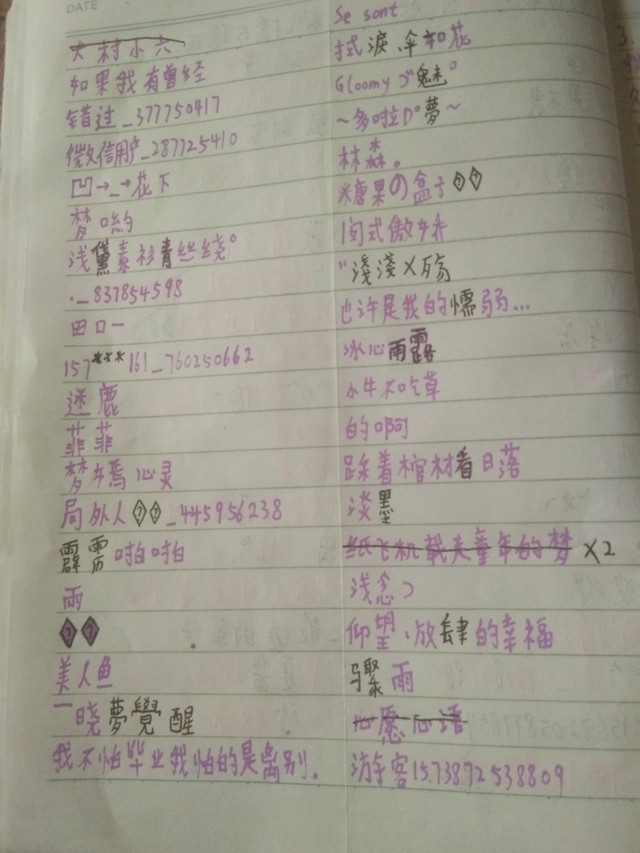 DATE
大村小六
如果我有曾经
错过_377750417
微信用户_287725410
凹→_→花下
梦口哟
浅黛素衫青丝绕°
·_837854598
田口一
157***161_760250662
迷鹿
菲菲
梦嫣心灵
局外人_445956238
霹雳啪啪
雨
美人鱼
一晓夢覺醒
我不怕毕业我怕的是离别.
Se sont
拭淚、伞和花
Gloomy づ魅°
~多啦D°夢~
林淼。
糖果の盒子
1旬式傲娇
"淺淺×殇
也许是我的懦弱...
冰心雨露
水牛不吃草
的啊
跺着棺材看日落
淡墨
纸飞机载夫童年的梦 X2
浅念つ
仰望、放肆的幸福
骤雨
心愿心语
游客1573872538809